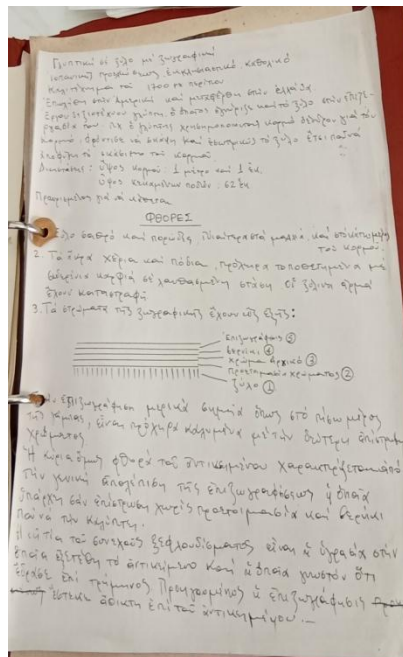 Γλυπτική σέ ξύλο μέ ζωγραφική
Ἱσπανικῆς προελεύσεως, ἐκκλησιαστικό, καθολικό
Καλλιτέχνημα τοῦ 1700 αι περίπου
στήν Ἀμερική καί μεταφέρθη στήν Ἑλλάδα.
Ἔργον δεξιοτέχνου γλύπτη, ὁ ὁποῖος καί τό ξύλο στήν
του. π.χ. ὁ γλύπτης χρησιμοποιώντας κορμό δένδρου γιά τόν
κορμό, φρόντισε νά καί ἐσωτερικῶς τό ξύλο ἔτσι
τό σκάσιμο τοῦ κορμοῦ
Διαστάσεις: ὕψος κορμοῦ: 1 μέτρο καί 1 ἑκ.
ὕψος ποδιῶν. 62 ἑκ
Προορισμένος γιά νά κάθεται
ΦΘΟΡΕΣ
Ξύλο σαθρό καί πορώδες, ἰδιαίτερα στά μαλλιά, καί στό κάτω μέρος
τοῦ κορμοῦ.
2. Τά χέρια καί πόδια, πρόχειρα τοποθετημένα μέ
καρφιά σέ λανθασμένη στάση. Οἱ ξύλινοι ἁρμοί
ἔχουν καταστραφῆ
3. Τά στρώματα τῆς ζωγραφικῆς ἔχουν ὡς ἑξῆς:
Ἐπιζωγράφισις ⑤
βερνίκι ④
χρῶμα ἀρχικό ③
προετοιμασία χρώματος ②
ξύλο ①
ἐπιζωγράφηση μερικά σημεῖα ὅπως στό πίσω μέρος
τῆς, εἶναι πρόχειρα καλυμένα μέ τήν δεύτερη ἐπίστρωση
χρώματος
Ἡ κύρια ὅμως φθορά τοῦ ἀντικειμένου χαρακτηρίζεται ἀπό
τήν γενική ἀπολέπιση τῆς ἐπιζωγραφίσεως ἡ ὁποία
ὑπάρχει σάν ἐπίστρωση χωρίς προετοιμασία καί βερνίκι
νά τήν καλύπτη.
Ἡ αἰτία τοῦ συνεχοῦς ξεφλουδίσματος εἶναι ἡ ὑγρασία στήν
ὁποία ἐξετέθη τό ἀντικείμενο καί ἡ ὁποία γνωστόν ὅτι
ἔδρασε ἐπί τρίμηνος Προηγουμένως ἡ ἐπιζωγράφισις
ἔστεκε ἄθικτη ἐπί τοῦ ἀντικειμένου. —